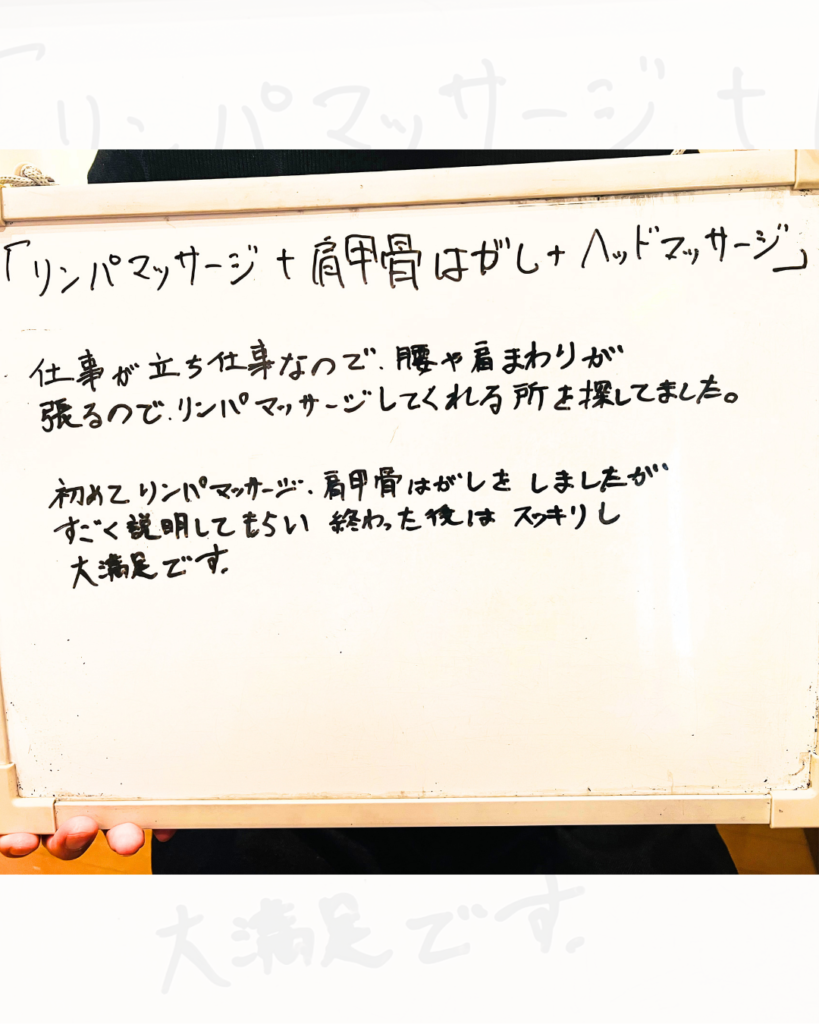 「リンパマッサージ+肩甲骨はがし+ヘッドマッサージ」
仕事が立ち仕事なので、腰や肩まわりが
張るので、リンパマッサージしてくれる所を探してました。
初めてリンパマッサージ、肩甲骨はがしを しましたが
すごく説明してもらい 終わった後は スッキリし
大満足です。